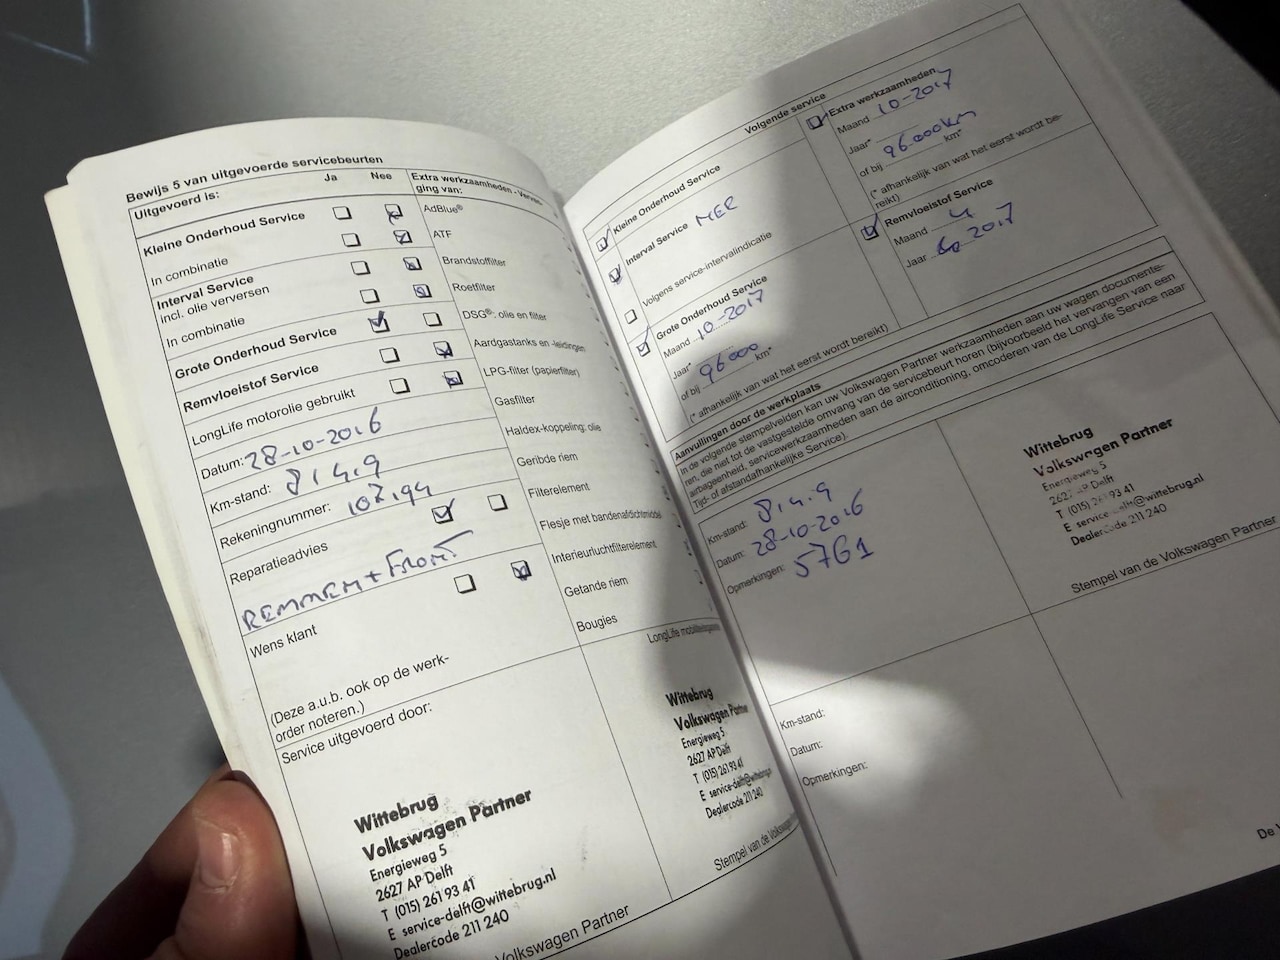 Bewijs 5 van uitgevoerde servicebeurten
Uitgevoerd is:
Ja Nee
Kleine Onderhoud Service
In combinatie
Interval Service
incl. olie verversen
In combinatie
Grote Onderhoud Service
Remvloeistof Service
LongLife motorolie gebruikt
Datum: 28-10-2016
Km-stand: 81.4.9
Rekeningnummer:
Reparatieadvies
REMMEM + FRONT
Wens klant
(Deze a.u.b. ook op de werk-
order noteren.)
Service uitgevoerd door:
Wittebrug
Volkswagen Partner
Energieweg 5
2627 AP Delft
T (015) 261 93 41
E service-delft@wittebrug.nl
Dealercode 211 240
Volkswagen Partner
Extra werkzaamheden - Vervan
ging van:
AdBlue®
ATF
Brandstoffilter
Roetfilter
DSG®: olie en filter
Aardgastanks en -leidingen
LPG-filter (papierfilter)
Gasfilter
Haldex-koppeling: olie
Geribde riem
Filterelement
Flesje met bandenafdichtmiddel
Interieurluchtfilterelement
Getande riem
Bougies
LongLife
Wittebrug
Volkswagen Partne
Energieweg 5
2627 AP Delft
T (015) 261 93 41
E service-delft@wittebrug
Dealercode 211 240
Stempel van de Volkswagen
Volgende service
Kleine Onderhoud Service
Interval Service
Volgens service-intervalindicatie
Grote Onderhoud Service
Maand 10-2017
Jaar*
of bij 96000 km*
(* afhankelijk van wat het eerst wordt bereikt)
Extra werkzaamheden
Maand 10-2017
Jaar*
of bij 96.000km km*
(* afhankelijk van wat het eerst wordt be-
reikt)
Remvloeistof Service
Maand 4
Jaar 2017
Aanvullingen door de werkplaats
In de volgende stempelvelden kan uw Volkswagen Partner werkzaamheden aan uw wagen documente-
ren, die niet tot de vastgestelde omvang van de servicebeurt horen (bijvoorbeeld het vervangen van een
airbageenheid, servicewerkzaamheden aan de airconditioning, omcoderen van de LongLife Service naar
Tijd- of afstandafhankelijke Service).
Km-stand: 81.4.9
Datum: 28-10-2016
Opmerkingen: 57G1
Wittebrug
Volkswagen Partner
Energieweg 5
2627 AP Delft
T (015) 261 93 41
E service-delft@wittebrug.nl
Dealercode 211 240
Stempel van de Volkswagen Partner
Km-stand:
Datum:
Opmerkingen:
De